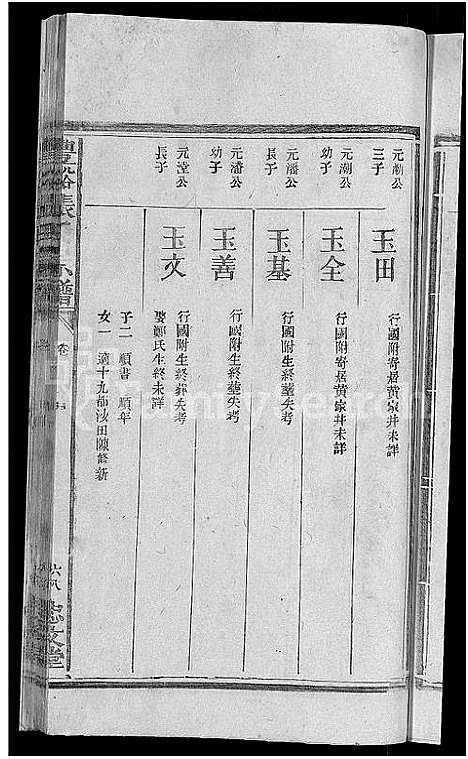 元潮公
三子
玉田
行國附寄居黄家井未詳
元潮公
幼子
玉全
行國附寄居黄家井未詳
元潘公
長子
玉基
行國附生終塟失考
元潘公
幼子
玉善
行國附生終塟失考
元瀅公
長子
玉文
行國附生終葬失考
娶鄭氏生終未詳
子二 順書 順年
女一 適十九都汝田陳
新
卷
六八